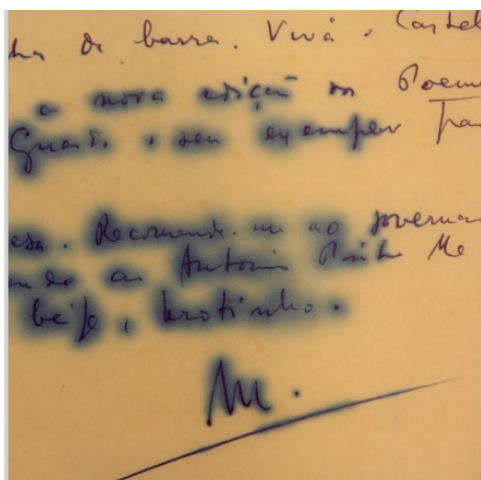 de barra. Viva o Castel
a nova edição dos Poem
Guarde o seu exemplar par
esa. Recomende-me ao governa
ando ao Antonio Pinto Me
beijo, brotinho.
M.